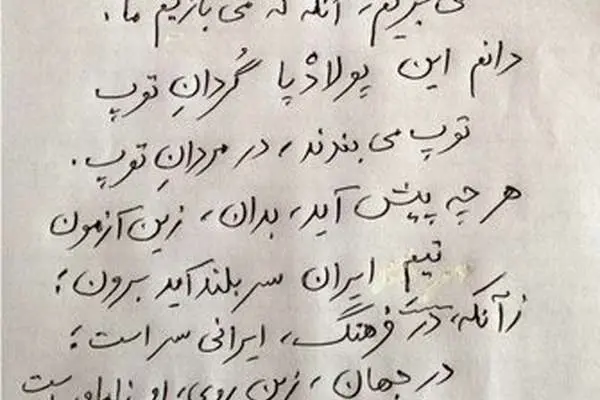 می بریم، آنگه که می بازیم ما.
دانم این پولادْپا گُردانِ توپ
توپ می بندند، در مردانِ توپ.
هر چه پیش آید، بدان، زین آزمون
تیمِ ایران سر بلند آید برون؛
زآنکه، در فرهنگ، ایرانی سر است؛
در جهان، زین روی، او